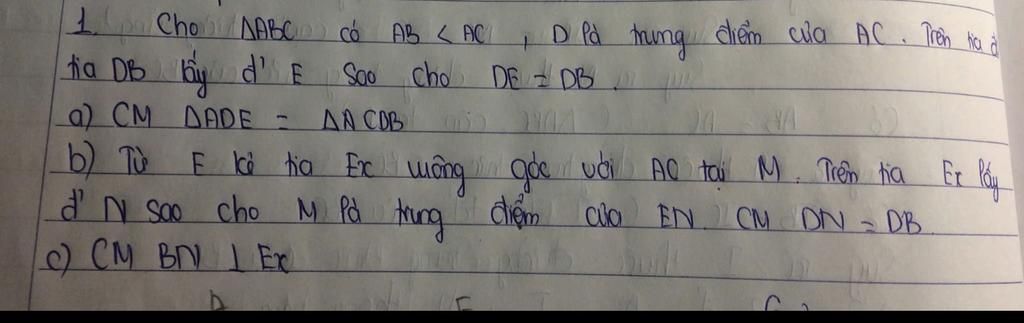 1. Cho ΔABC có AB < AC , D là trung điểm của AC. Trên tia đ
tia DB lấy đ' E sao cho DE = DB.
a) CM ΔADE = ΔACDB
b) Từ E kẻ tia Ex vuông góc với AC tại M. Trên tia Ex lấy
đ' N sao cho M là trung điểm của EN. CM DN = DB
c) CM BN ⊥ Ex